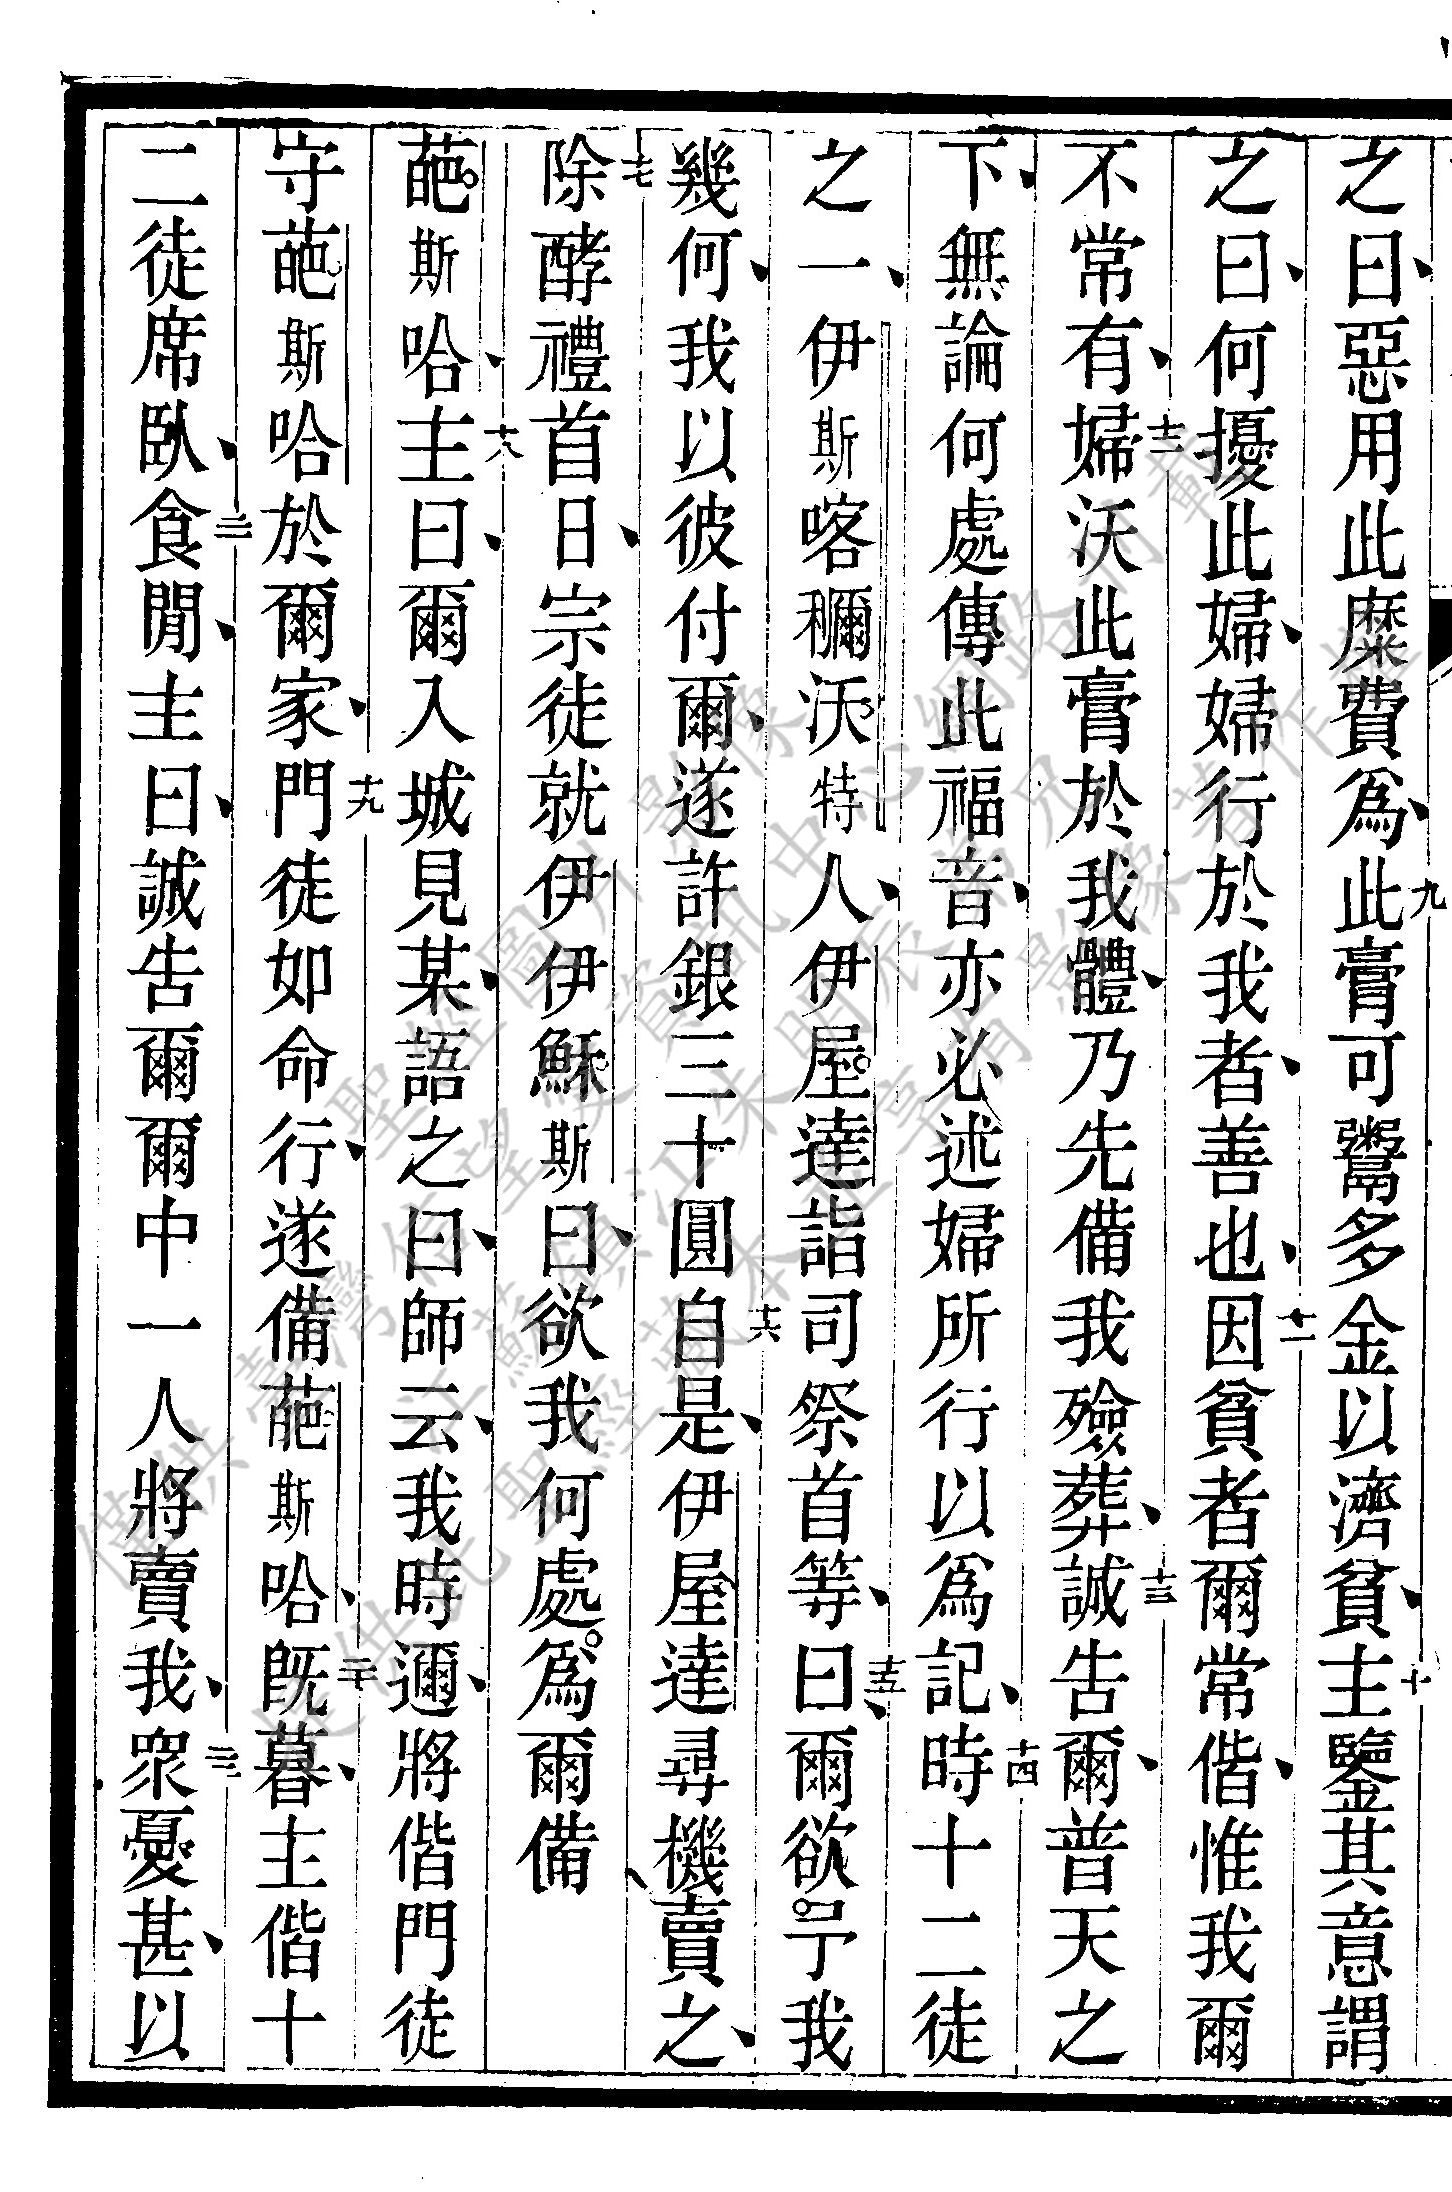 之曰惡用此糜費爲九此膏可鬻多金以濟貧十主鑒其意謂
之曰何擾此婦婦行於我者善也十一因貧者爾常偕惟我爾
不常有十二婦沃此膏於我體乃先備我殮葬十三誠告爾普天之
下無論何處傳此福音亦必述婦所行以爲記十四時十二徒
之一伊斯喀穪沃特人伊屋達詣司祭首等十五曰爾欲予我
幾何我以彼付爾遂許銀三十圓十六自是伊屋達尋機賣之
十七除酵禮首日宗徒就伊伊穌斯曰欲我何處爲爾備
葩斯哈十八主曰爾入城見某語之曰師云我時邇將偕門徒
守葩斯哈於爾家十九門徒如命行遂備葩斯哈二十既暮主偕十
二徒席臥二一食閒主曰誠告爾爾中一人將賣我二二衆憂甚以
僅供臺灣信望愛資訊中心網路刊載